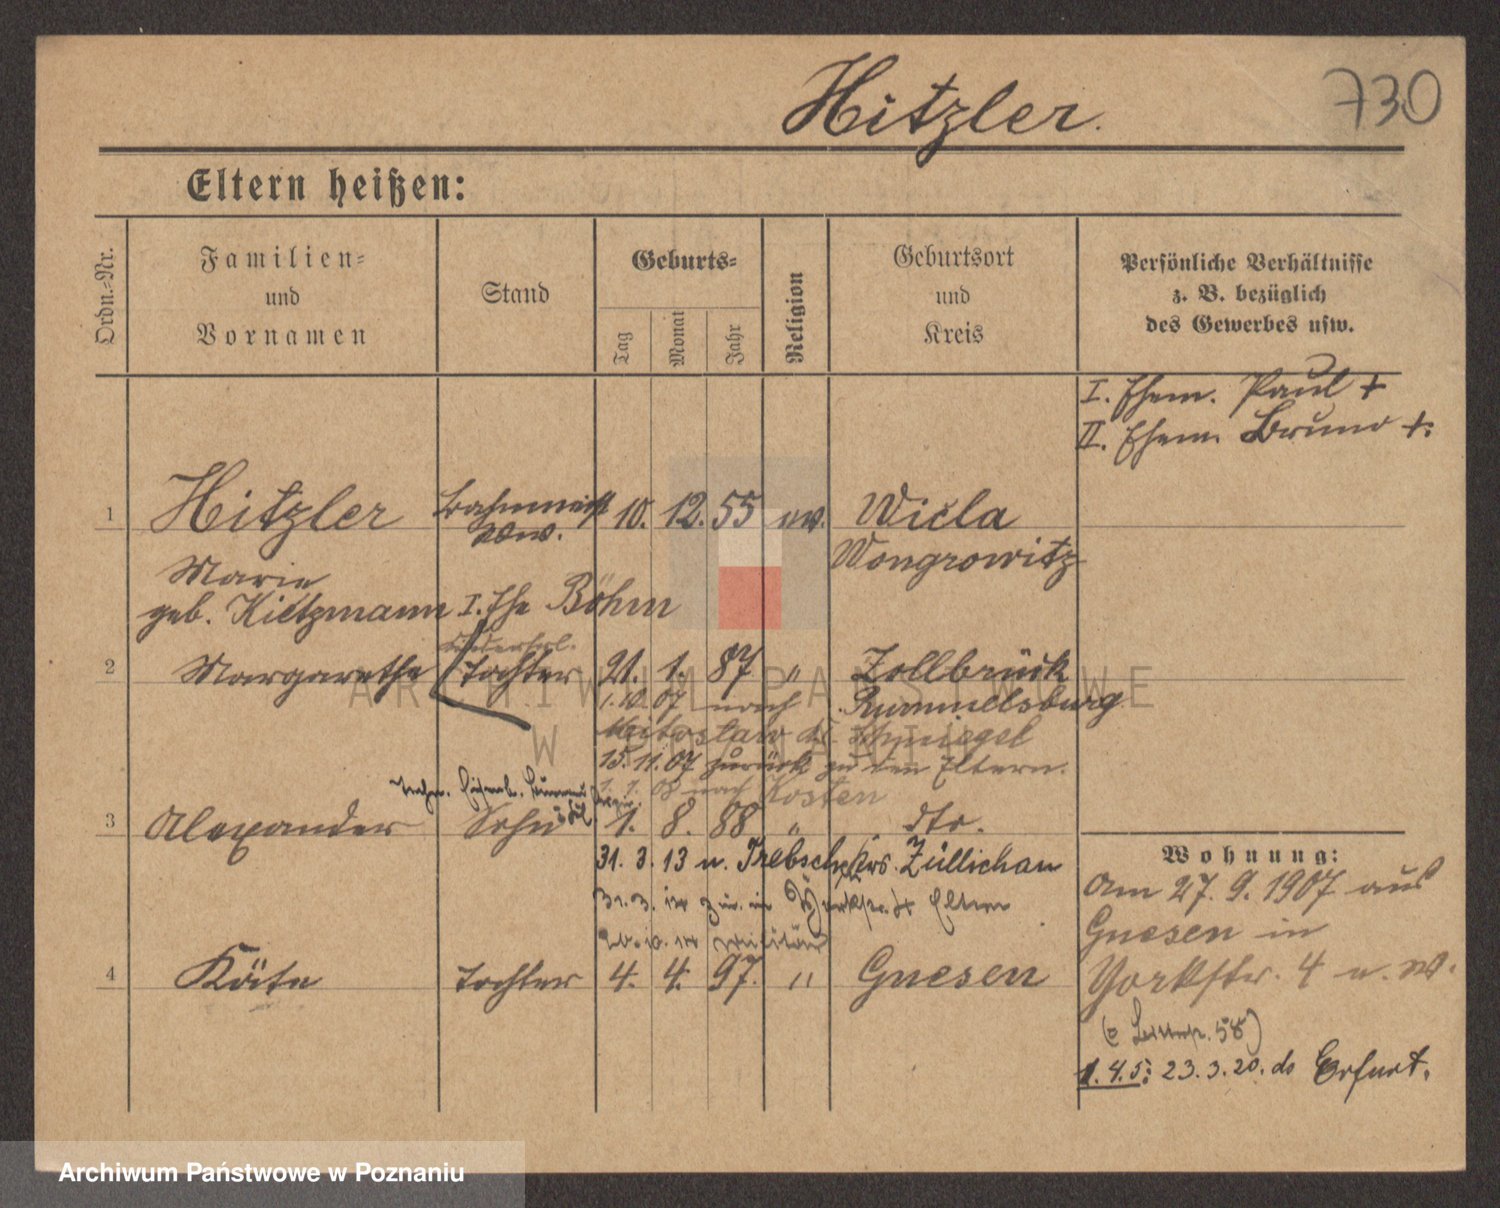 Hitzler.
730
Eltern heißen:
Ordn.-Nr.
Familien-
und
Vornamen
Stand
Geburts-
Tag
Monat
Jahr
Religion
Geburtsort
und
Kreis
Persönliche Verhältnisse
z. B. bezüglich
des Gewerbes usw.
I. Ehem. Paul +
II. Ehem. Bruno +.
1 Hitzler 10. 12. 55 ev. Wiela
Wongrowitz
Marie
geb. Kietzmann I. Ehe Böhm
2 Margarethe Tochter 21. 1. 87 " Zollbrück
1.10.07 nach Rummelsburg
Schmiegel
15.11.07 zurück zu den Eltern.
1. 1. 08 nach Kosten
3 Alexander Sohn 1. 8. 88 " dto.
31. 3. 13 n. Trebschen Krs. Züllichau
Eltern
Militär
4 Käte Tochter 4. 4. 97. " Gnesen
Wohnung:
Am 27. 9. 1907 aus
Gnesen in
Yorkstr. 4 u. W.
1.4.5: 23.3.20. do Erfurt.
ARCHIWUM PAŃSTWOWE
W POZNANIU
Archiwum Państwowe w Poznaniu